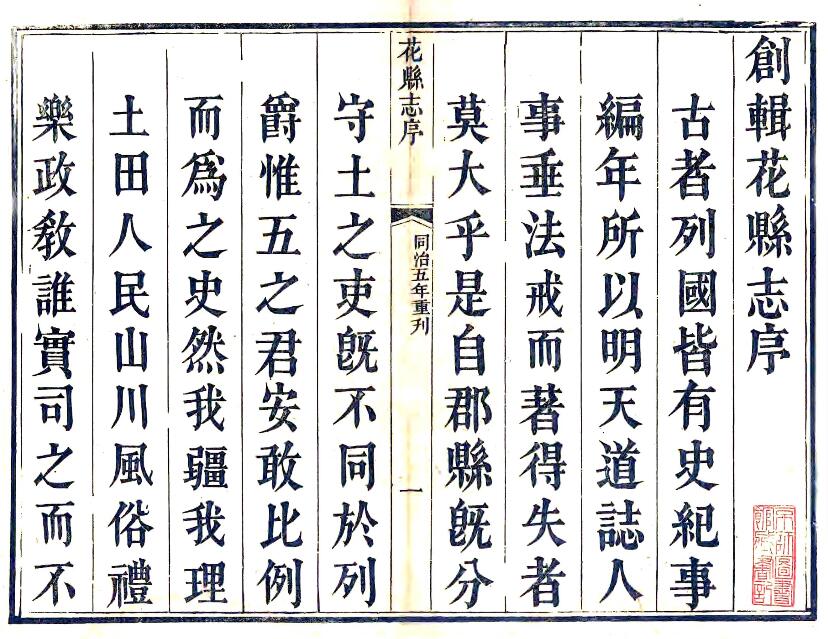 創輯花縣志序
古者列國皆有史紀事
編年所以明天道誌人
事垂法戒而著得失者
莫大乎是自郡縣既分
花縣志序
同治五年重刊
一
守土之吏既不同於列
爵惟五之君安敢比例
而為之史然我疆我理
土田人民山川風俗禮
樂政教誰實司之而不